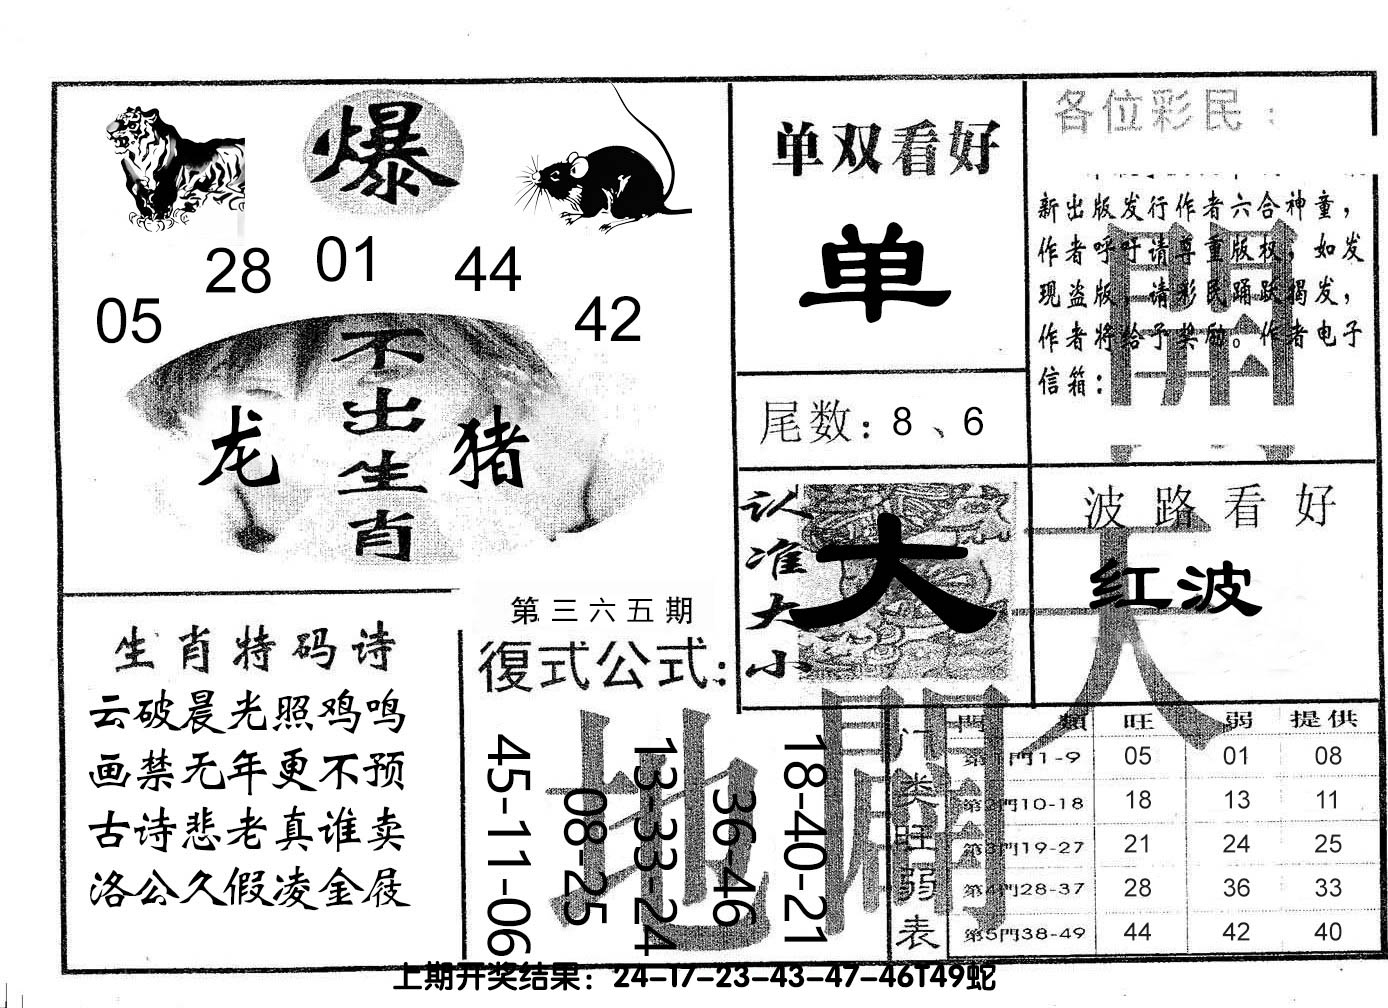 爆
28 01 44
05 42
不出生肖
龙 猪
单双看好
单
尾数：8、6
各位彩民：
新出版发行作者六合神童，
作者呼吁请尊重版权，如发
现盗版，请彩民踊跃揭发，
作者将给予奖励。作者电子
信箱：
開
认准大小
大
波路看好
红波
天
生肖特码诗
云破晨光照鸡鸣
画禁无年更不预
古诗悲老真谁卖
洛公久假凌金屐
第三六五期
復式公式：
45-11-06
08-25
13-33-24
36-46
18-40-21
地
開
门类旺弱表
門類 旺 弱 提供
第1門1-9 05 01 08
第2門10-18 18 13 11
第3門19-27 21 24 25
第4門28-37 28 36 33
第5門38-49 44 42 40
上期开奖结果：24-17-23-43-47-46T49蛇